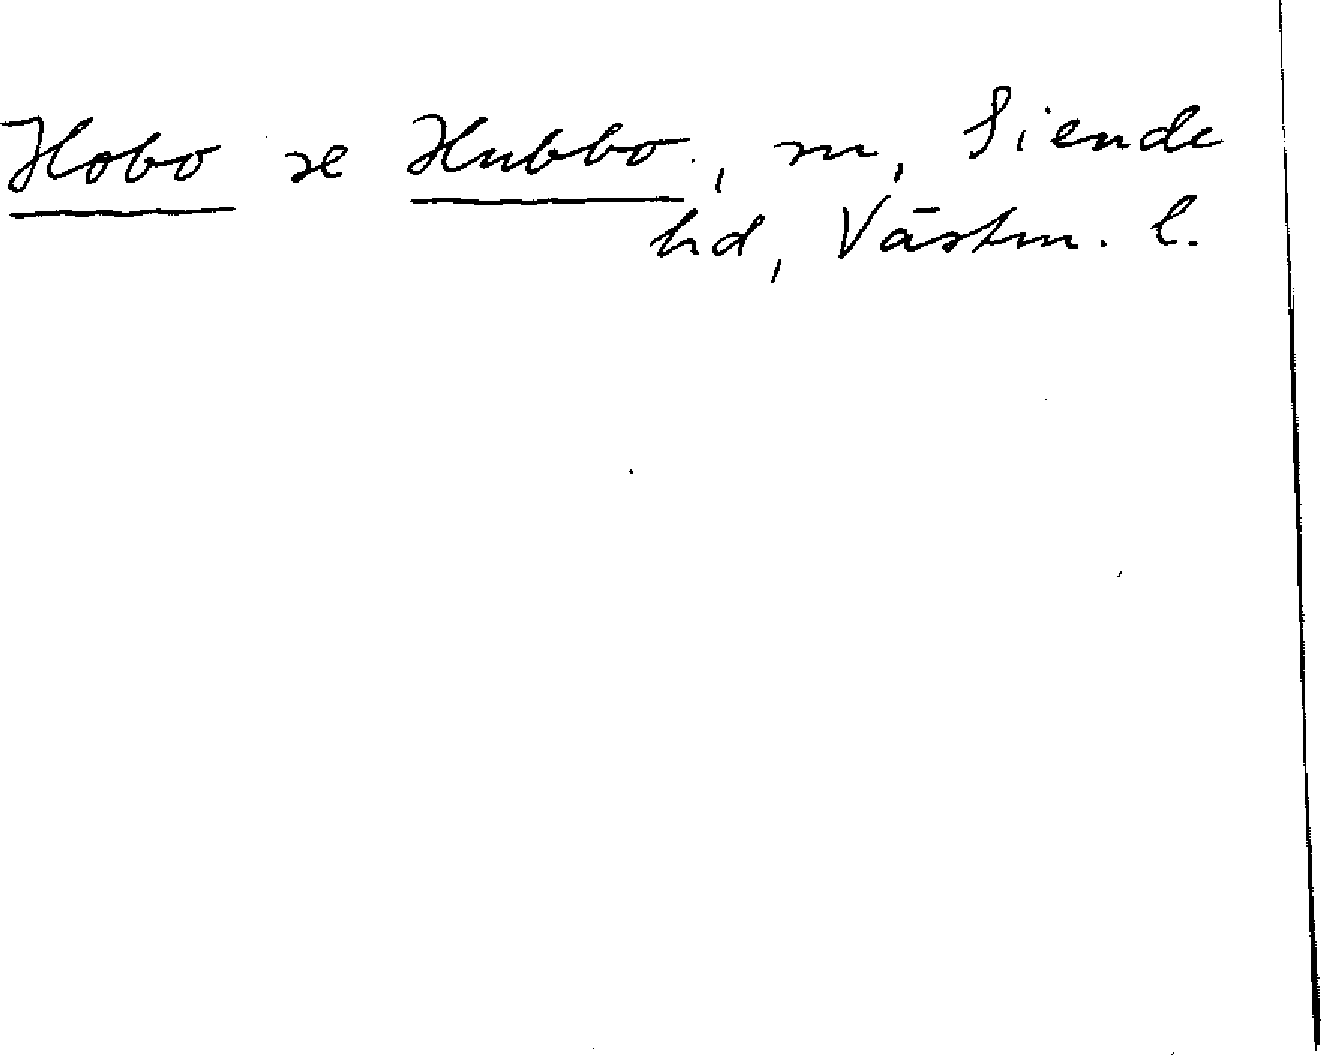 Hobo se Hubbo, sn, Siende
hd, Västm. l.